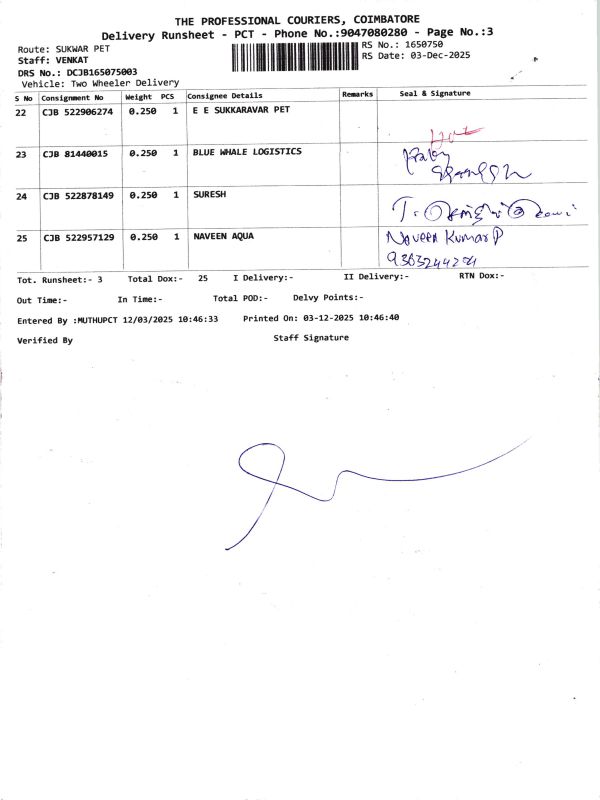 THE PROFESSIONAL COURIERS, COIMBATORE
Delivery Runsheet - PCT - Phone No.:9047080280 - Page No.:3
Route: SUKWAR PET RS No.: 1650750
Staff: VENKAT RS Date: 03-Dec-2025
DRS No.: DCJB165075003
Vehicle: Two Wheeler Delivery
S No Consignment No Weight PCS Consignee Details Remarks Seal & Signature
22 CJB 522906274 0.250 1 E E SUKKARAVAR PET
23 CJB 81440015 0.250 1 BLUE WHALE LOGISTICS
24 CJB 522878149 0.250 1 SURESH
25 CJB 522957129 0.250 1 NAVEEN AQUA Naveen Kumar P
Tot. Runsheet:- 3 Total Dox:- 25 I Delivery:- II Delivery:- RTN Dox:-
Out Time:- In Time:- Total POD:- Delvy Points:-
Entered By :MUTHUPCT 12/03/2025 10:46:33 Printed On: 03-12-2025 10:46:40
Verified By Staff Signature